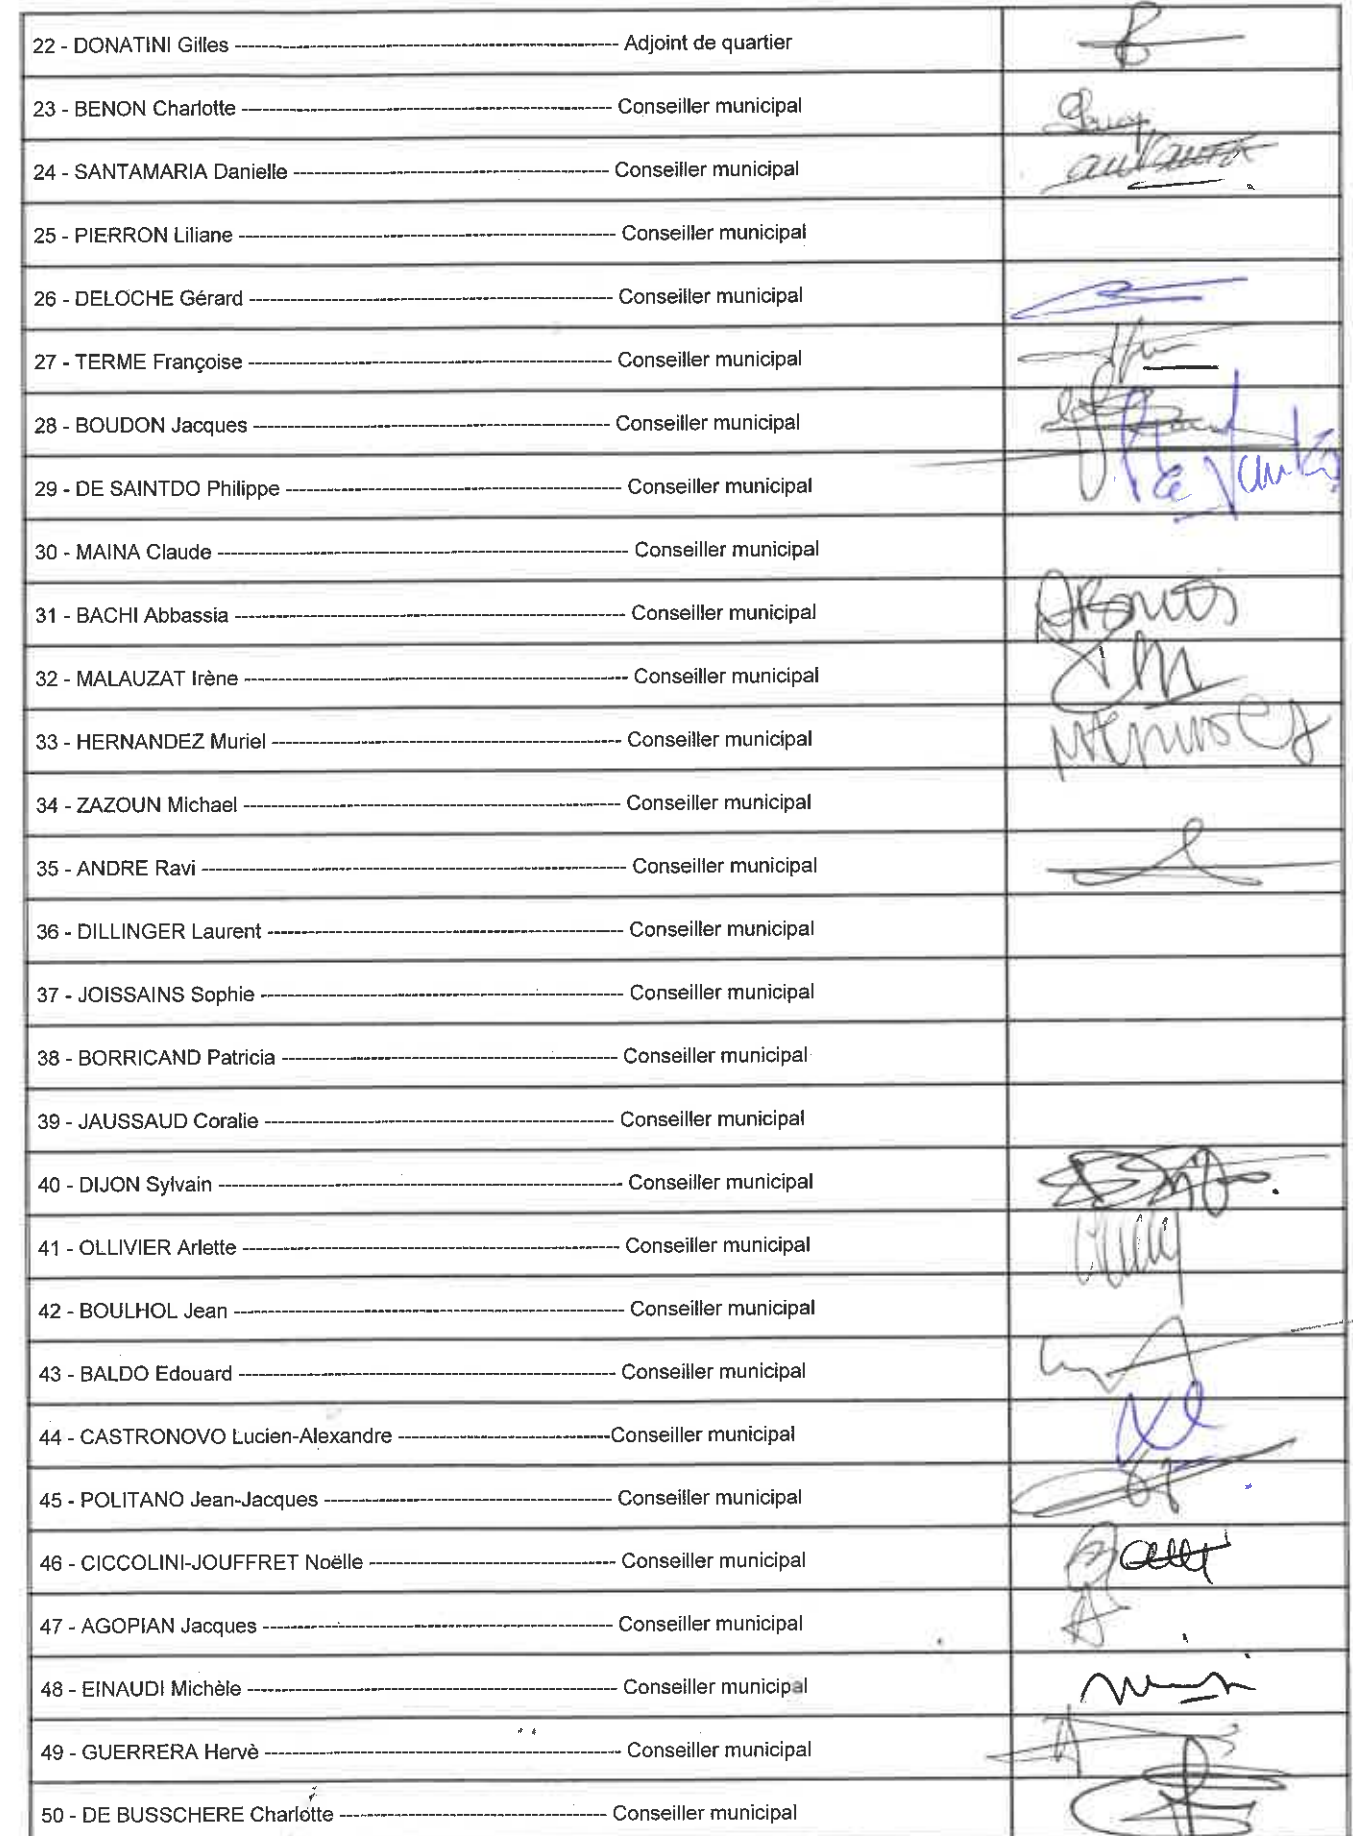 22 - DONATINI Gilles ---------- Adjoint de quartier
23 - BENON Charlotte ---------- Conseiller municipal
24 - SANTAMARIA Danielle ---------- Conseiller municipal
25 - PIERRON Liliane ---------- Conseiller municipal
26 - DELOCHE Gérard ---------- Conseiller municipal
27 - TERME Françoise ---------- Conseiller municipal
28 - BOUDON Jacques ---------- Conseiller municipal
29 - DE SAINTDO Philippe ---------- Conseiller municipal
30 - MAINA Claude ---------- Conseiller municipal
31 - BACHI Abbassia ---------- Conseiller municipal
32 - MALAUZAT Irène ---------- Conseiller municipal
33 - HERNANDEZ Muriel ---------- Conseiller municipal
34 - ZAZOUN Michael ---------- Conseiller municipal
35 - ANDRE Ravi ---------- Conseiller municipal
36 - DILLINGER Laurent ---------- Conseiller municipal
37 - JOISSAINS Sophie ---------- Conseiller municipal
38 - BORRICAND Patricia ---------- Conseiller municipal
39 - JAUSSAUD Coralie ---------- Conseiller municipal
40 - DIJON Sylvain ---------- Conseiller municipal
41 - OLLIVIER Arlette ---------- Conseiller municipal
42 - BOULHOL Jean ---------- Conseiller municipal
43 - BALDO Edouard ---------- Conseiller municipal
44 - CASTRONOVO Lucien-Alexandre ----------Conseiller municipal
45 - POLITANO Jean-Jacques ---------- Conseiller municipal
46 - CICCOLINI-JOUFFRET Noëlle ---------- Conseiller municipal
47 - AGOPIAN Jacques ---------- Conseiller municipal
48 - EINAUDI Michèle ---------- Conseiller municipal
49 - GUERRERA Hervè ---------- Conseiller municipal
50 - DE BUSSCHERE Charlotte ---------- Conseiller municipal